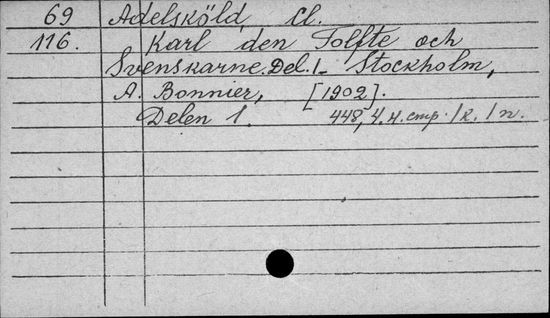 69 Adelsköld Cl.
116. Karl den Tolfte och
Svenskarne. Del. 1- Stockholm,
A. Bonnier, [1902].
Delen 1. 448, 4. н. стр. 1 к. 1 п.